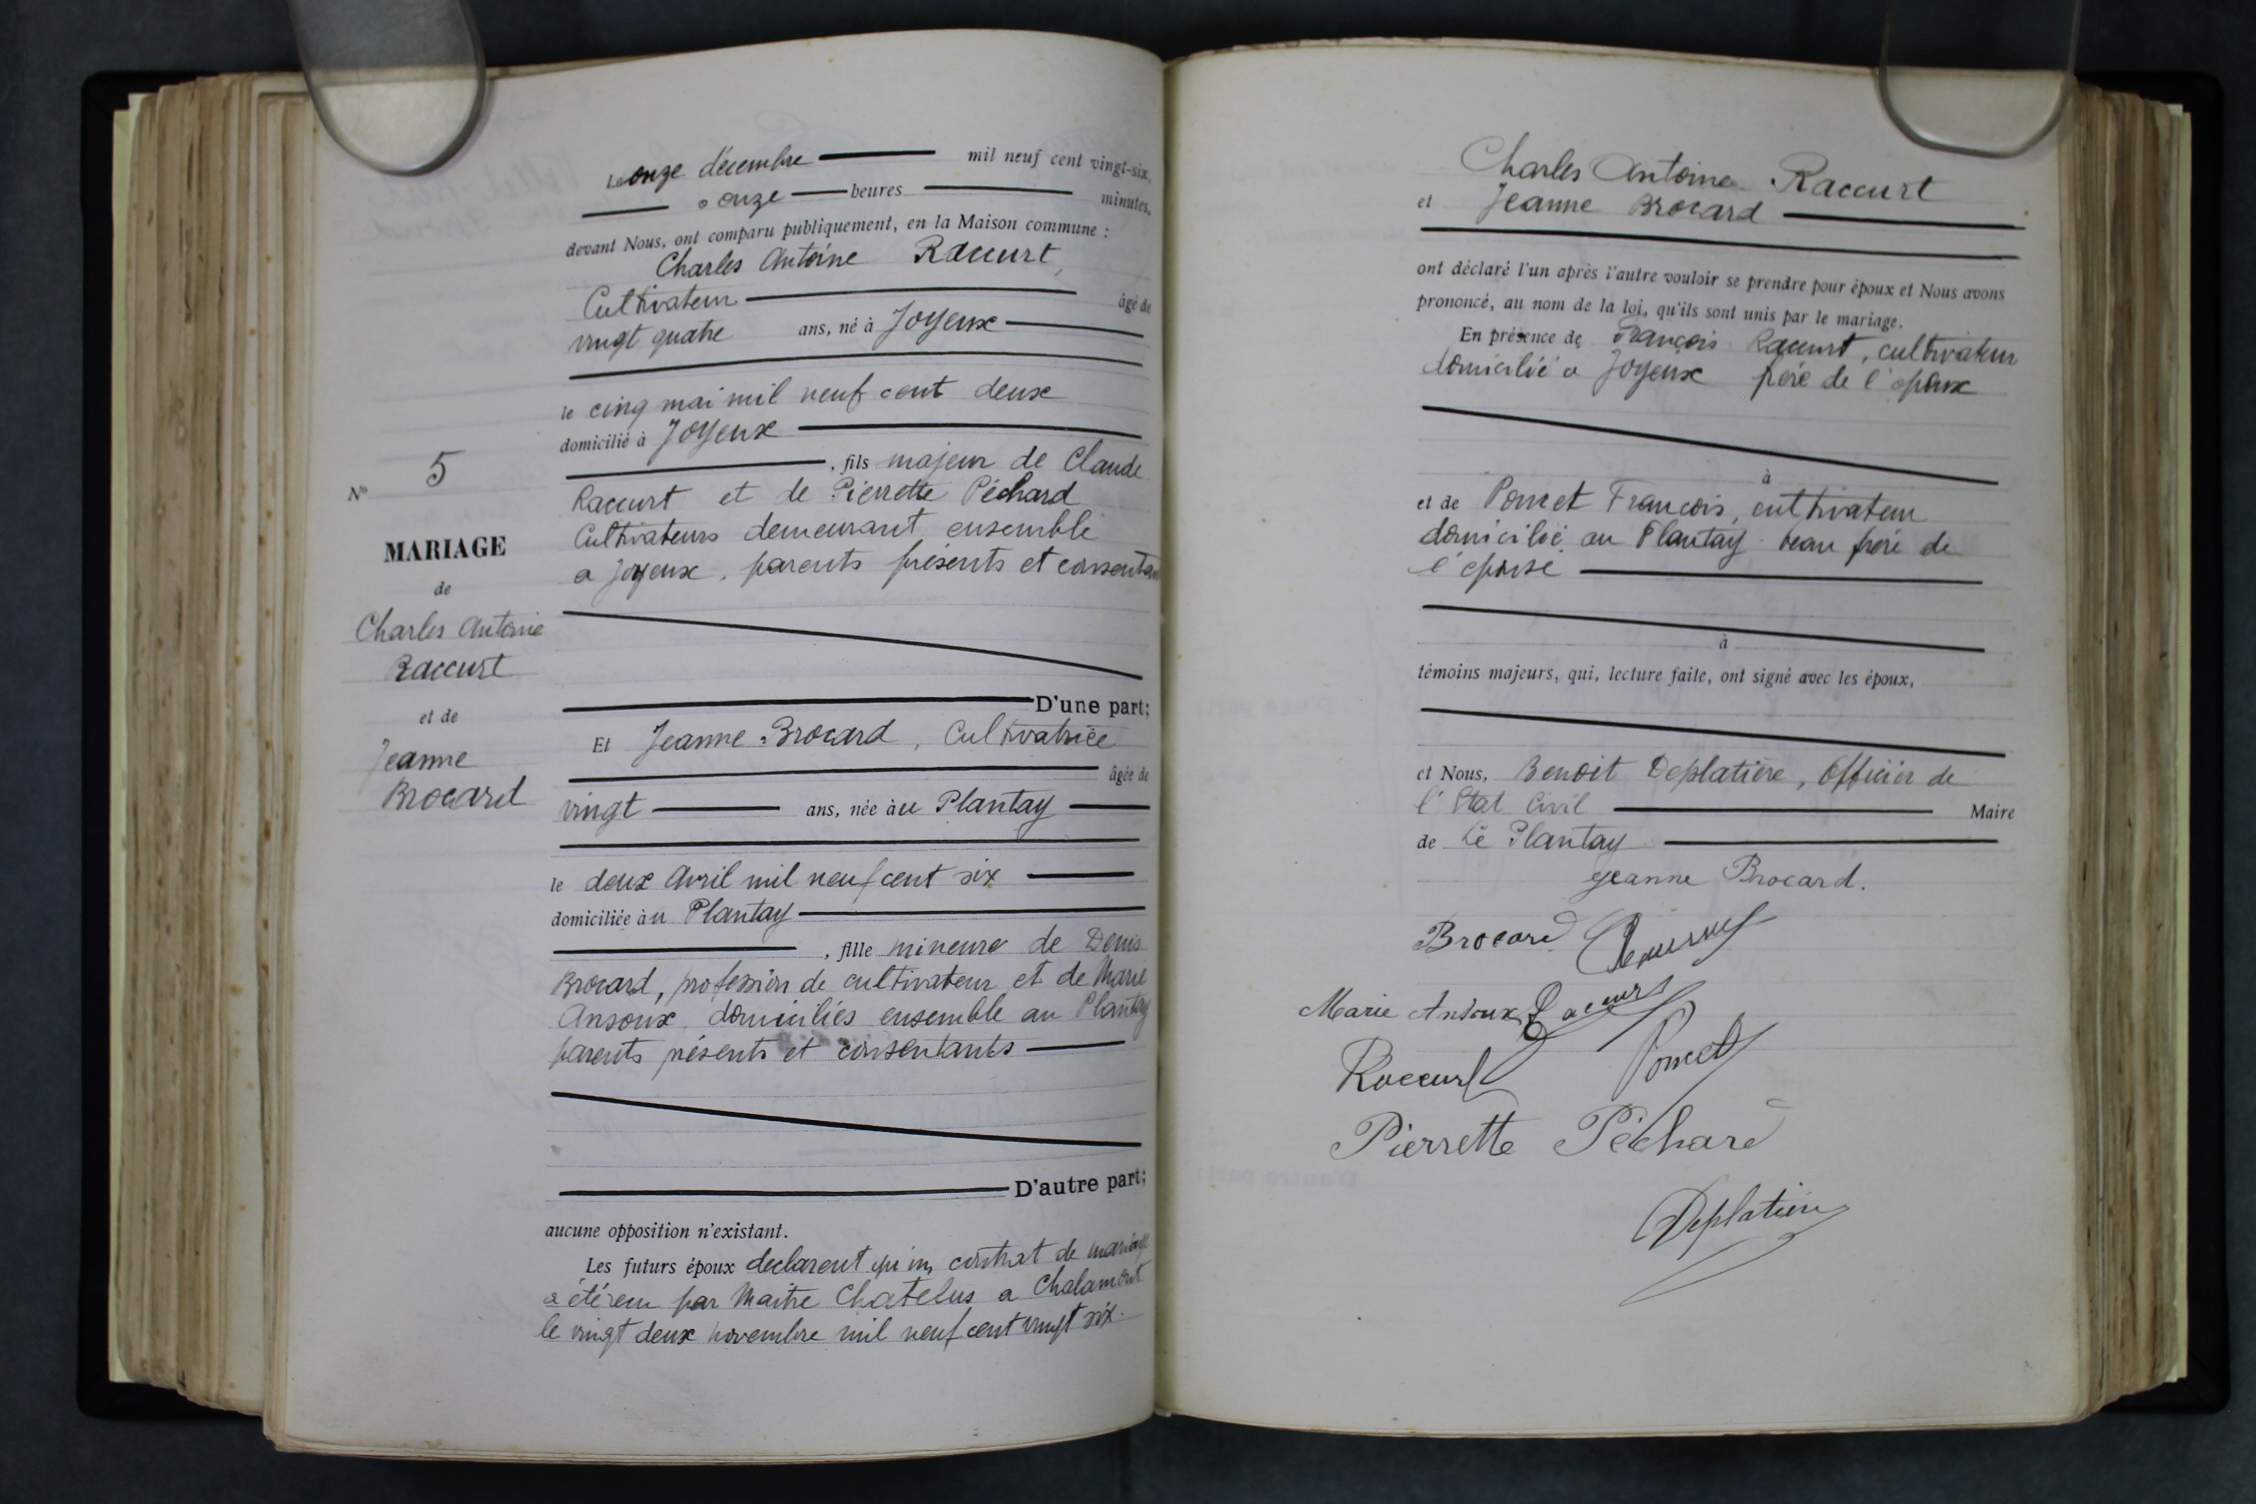 Le onze décembre mil neuf cent vingt-six,
à onze heures minutes,
devant Nous, ont comparu publiquement, en la Maison commune :
Charles Antoine Raccurt,
Cultivateur âgé de
vingt quatre ans, né à Joyeux
le cinq mai mil neuf cent deux
domicilié à Joyeux
, fils majeur de Claude
Raccurt et de Pierrette Péchard
Cultivateurs demeurant ensemble
a Joyeux, parents présents et consentants
D'une part;
Et Jeanne Brocard, Cultivatrice
âgée de
vingt ans, née àu Plantay
le deux Avril mil neuf cent six
domiciliée àu Plantay
, fille mineure de Denis
Brocard, profession de cultivateur et de Marie
Ansoux, domiciliés ensemble au Plantay
parents présents et consentants
D'autre part;
aucune opposition n'existant.
Les futurs époux declarent qu'un contrat de mariage
a été reçu par Maitre Chatelus a Chalamont
le vingt deux novembre mil neuf cent vingt six.
N° 5
MARIAGE
de
Charles Antoine
Raccurt
et de
Jeanne
Brocard
Charles Antoine Raccurt
et Jeanne Brocard
ont déclaré l'un après l'autre vouloir se prendre pour époux et Nous avons
prononcé, au nom de la loi, qu'ils sont unis par le mariage.
En présence de François Raccurt, cultivateur
domicilié a Joyeux frère de l'époux
à
et de Poncet François, cultivateur
domicilié au Plantay beau frère de
l'épouse
à
témoins majeurs, qui, lecture faite, ont signé avec les époux,
et Nous, Benoit Deplatière, Officier de
l'Etat Civil Maire
de Le Plantay
Jeanne Brocard.
Brocard
Marie Ansoux Raccurt
Raccurt Poncet
Pierrette Péchard
Deplatière